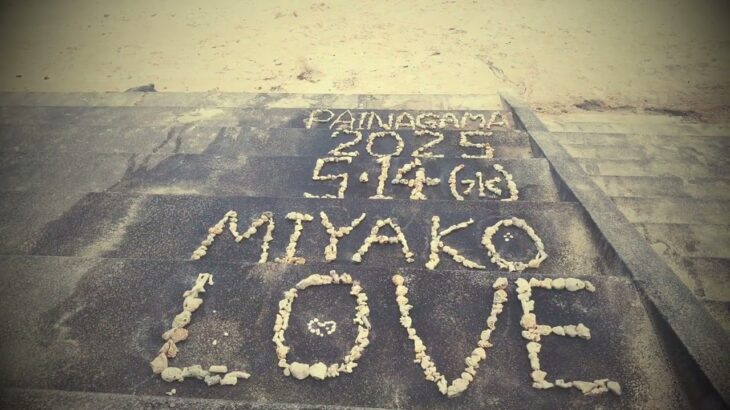 PAINAGAMA
2025
5・14(水)
MIYAKO
LOVE